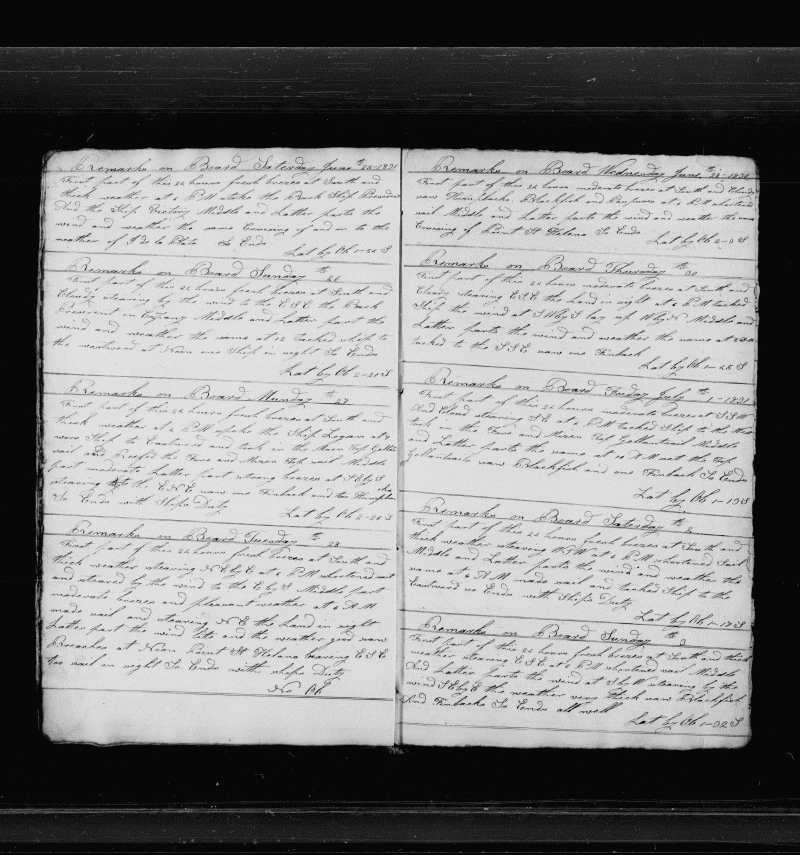 Remarks on Board Saturday June th 25-1831
First part of this 24 hours fresh breezes at South and
thick weather at 2 PM spoke the Bark Ship President
And the Ship Victory Middle and Latter parts the
wind and weather the same Crousing of and on to the
weather of I de la Plata So Ends
Lat by Ob S
Remarks on Board Sunday th 26
First part of this 24 hours fresh breezes at South and
Cloudy stearing by the wind to the ESE the Bark
President in Company Middle and Latter part the
wind and weather the same at 12 tacked ship to
the westward at Noon one Ship in sight So Ends
Lat by Ob 2-21 S
Remarks on Board Munday th 27
First part of this 24 hours fresh breezes at South and
thick weather at 2 PM spoke the Ship Logan at
wore Ship to Eastward and took in the Main Top Gallen
sail and Reefd the Fore and Mizen Top sail Middle
part moderate Latter part strong breezes at SEbyS
stearing the ENE saw one Finback and
So Ends with Ships Duty
Lat by Ob 2-20 S
Remarks on Board Tuesday th 28
First part of this 24 hours fresh brezes at South and
thick weather stearing NEbyE at 6 PM shortened sail
and steared by the wind to the EbyS Middle part
moderate breezes and pleasant weather at 6 AM
made sail and stearing NE the land in sight
Latter part the wind lite and the weather good saw
Breaches at Noon Point St Helena bearing ESE
too sail in sight So Ends with ships Duty
No Ob
Remarks on Board Wednesday June th 29-1831
First part of this 24 hours moderate breezes at South and Cloudy
saw Humpbacks Blackfish and Porpuses at 6 PM shortened
sail Middle and Latter parts the wind and weather the same
Crousing of Point St Helena So Ends
Lat by Ob 2-0 S
Remarks on Board Thursday th 30
First part of this 24 hours moderate breezes at South and
Cloudy stearing ESE the land in sight at 6 PM tacked
Ship the wind at SWbyS lay up WbyN Middle and
Latter parts the wind and weather the same at AM
tacked to the SSE saw one Finback
Lat by Ob 1-25 S
Remarks on Board Friday July th 1-1831
First part of this 24 hours moderate breezes at SSW
And Cloud stearing SE at 6 PM tacked Ship to the West
took in the Fore and Mizen Top Gallentsail Middle
and Latter parts the same at 10 AM set the Top
Gallentsails saw Blackfish and one Finback So Ends
Lat by Ob 1-19 S
Remarks on Board Saturday th 2
First part of this 24 hours fresh breezes at South and
thick weather stearing WSW at 6 PM shortened Sail
Middle and Latter parts the wind and weather the
same at 6 AM made sail and tacked Ship to the
Eastward so Ends with Ships Duty
Lat by Ob 1-17 S
Remarks on Board Sunday th 3
First part of this 24 hours fresh breezes at South and thick
weather stearing ESE at 6 PM shortened sail Middle
And Latter parts the wind at SbyW stearing by the
wind SEbyE the weather very thick saw Blackfish
And Finbacks So Ends all well
Lat by Ob 1-32 S